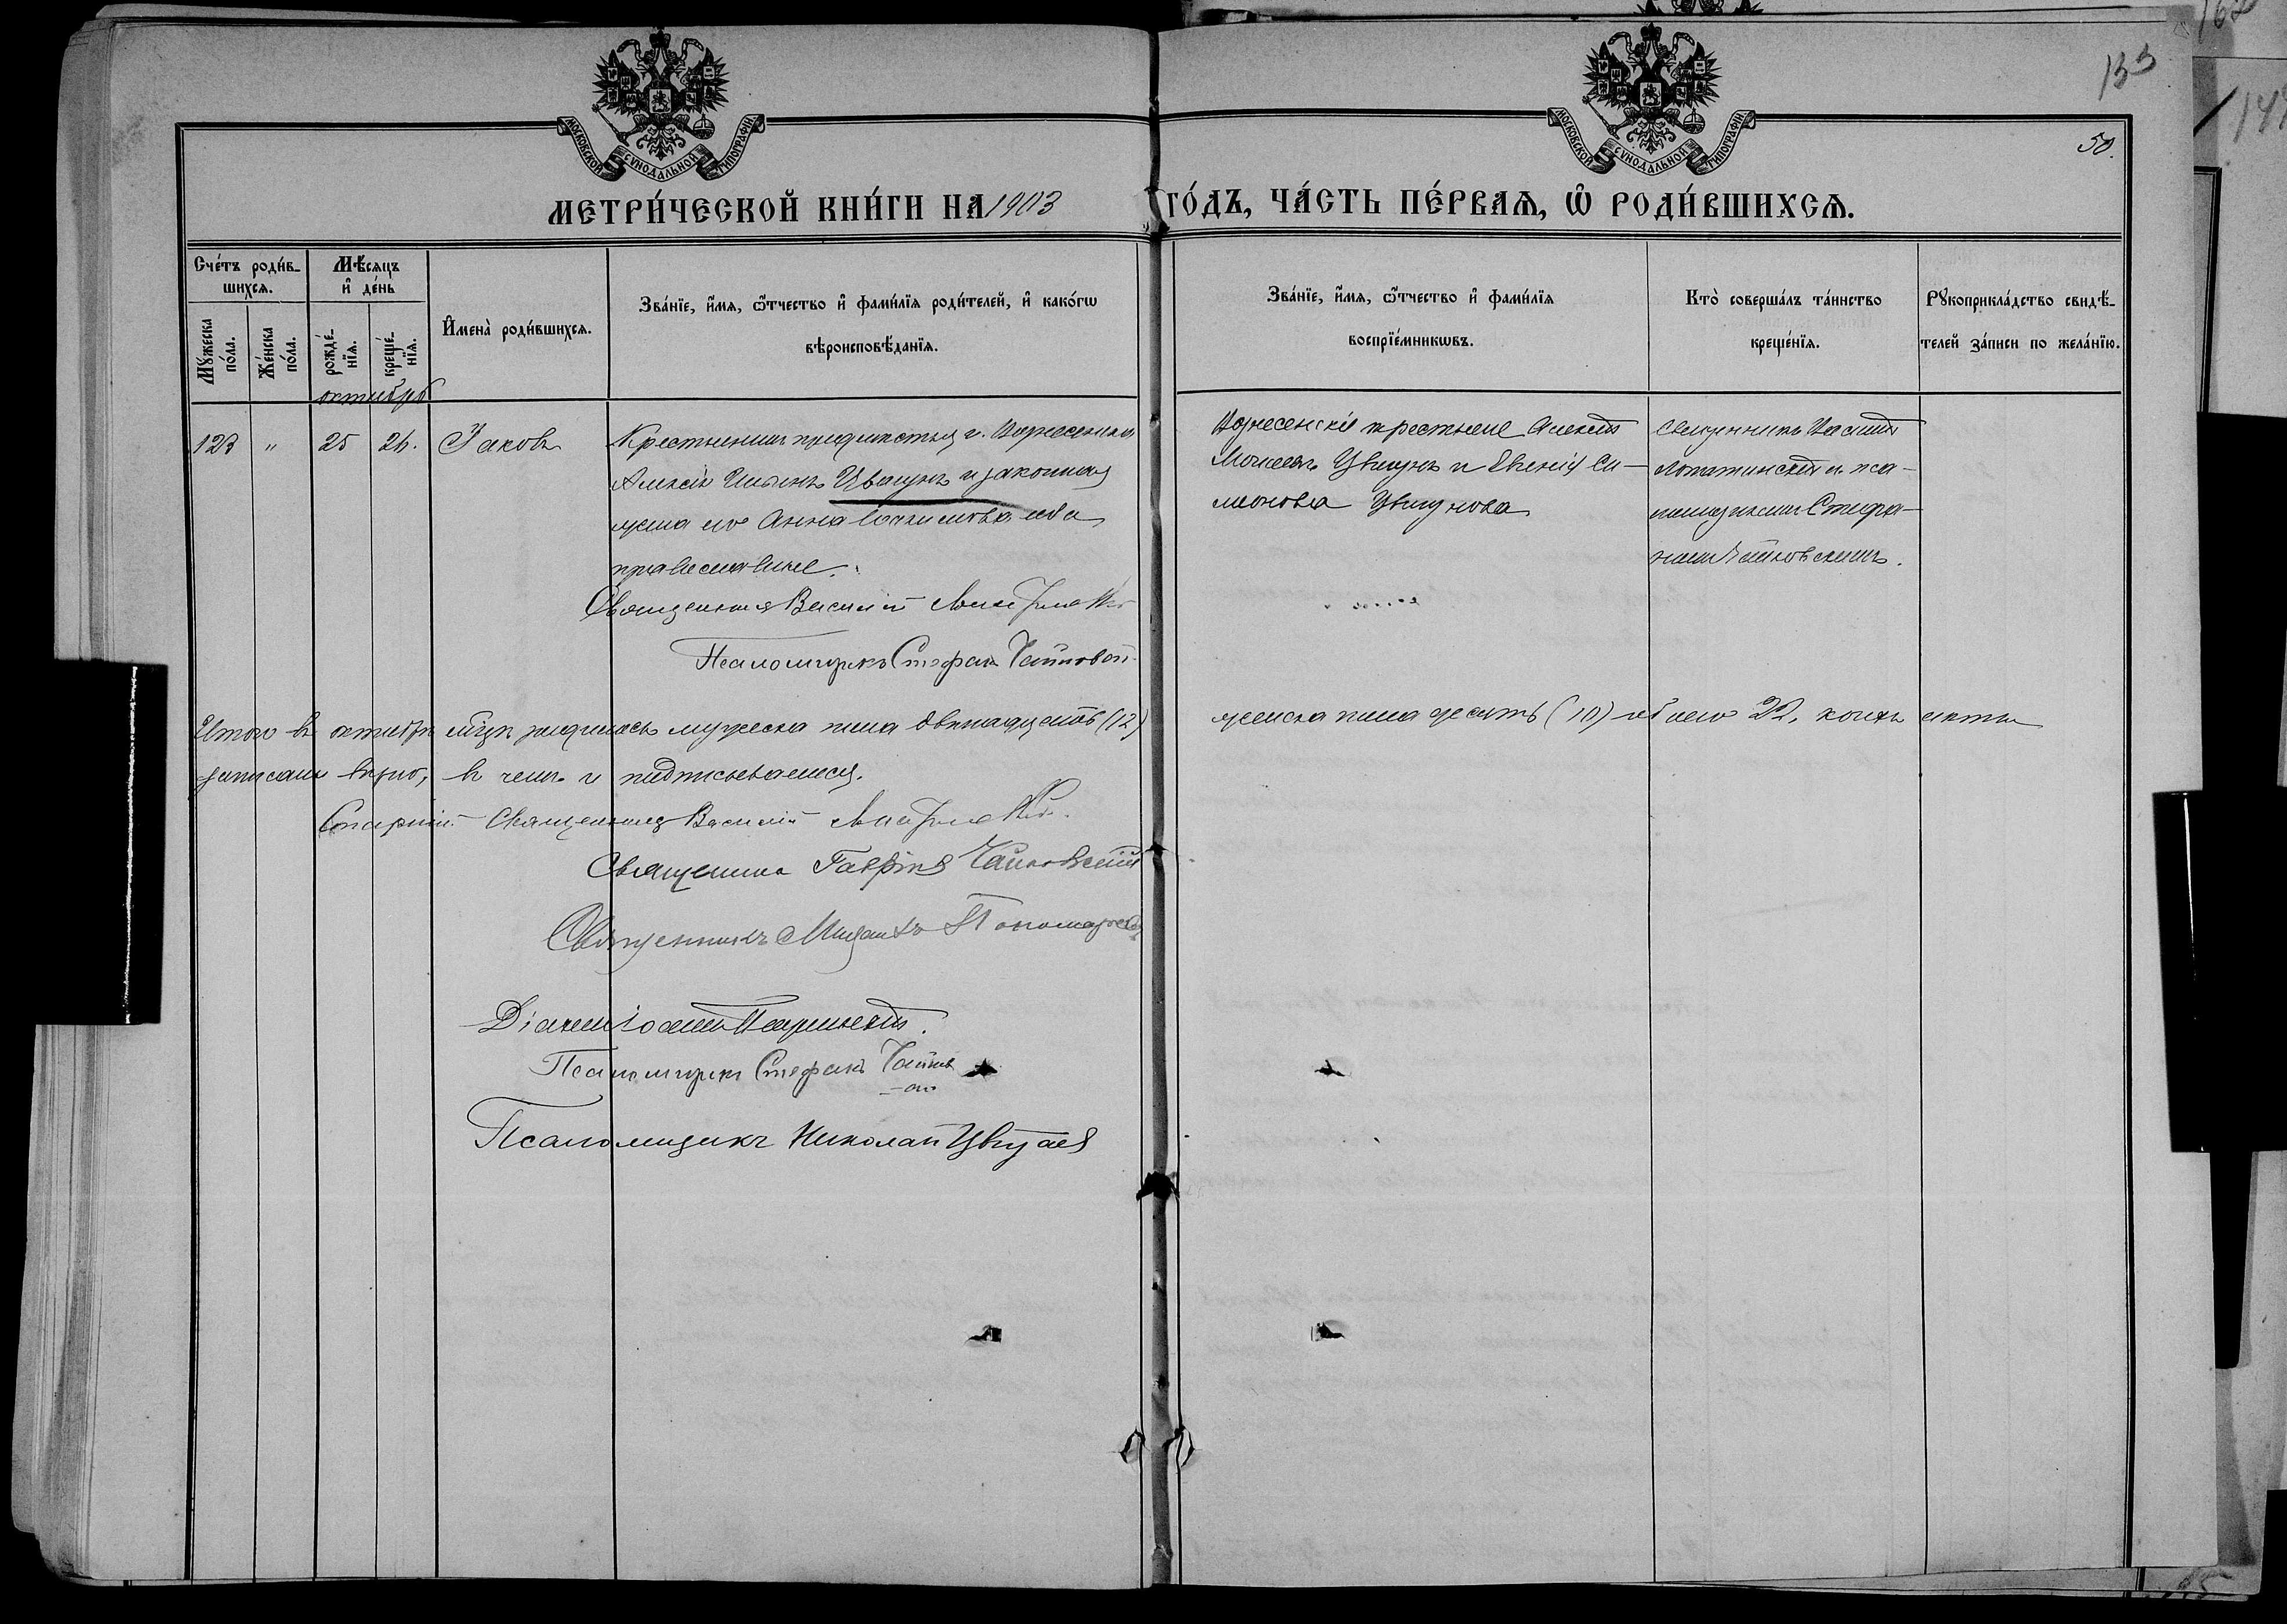 162
133
147
50.
МОСКОВСКОЙ СѴНОДАЛЬНОЙ ТИПОГРАФІИ
МОСКОВСКОЙ СѴНОДАЛЬНОЙ ТИПОГРАФІИ
МЕТРИ́ЧЕСКОЙ КНИ́ГИ НА 1903 ГО́ДЪ, ЧА́СТЬ ПЕ́РВАѦ, Ѡ҆ РОДИ́ВШИХСѦ.
Сче́тъ роди́в-
шихсѧ.
Мꙋ́жеска
по́ла.
Же́нска
по́ла.
Мѣ́сѧцъ
и҆ де́нь
рожде́-
нїѧ.
креще́-
нїѧ.
И҆мена̀ роди́вшихсѧ.
Зва́нїе, и҆́мѧ, ѻ҆́тчество и҆ фами́лїѧ роди́телей, и҆ како́гѡ
вѣроисповѣ́данїѧ.
Зва́нїе, и҆́мѧ, ѻ҆́тчество и҆ фами́лїѧ
воспрїе́мникѡвъ.
Кто̀ соверша́лъ та́инство
креще́нїѧ.
Рꙋкоприкла́дство свидѣ́-
телей за́писи по жела́нїю.
октябрь
123 " 25 26. Іаковъ
Крестьянинъ предместья г. Вознесенска
Алексій Цвигунъ и законная
жена его Анна оба
православные.
Священникъ Василій
Псаломщикъ Стефанъ Чайковскій
Вознесенскіе крестьяне Алексій
Моисеевъ Цвигунъ и Евгенія Си-
меонова Цвигунова
Священникъ Василій
Лопатинскій и пса-
ломщикомъ Стефа-
номъ Чайковскимъ.
Итого въ октябрѣ мѣсяцѣ родилось мужеска пола двѣнадцать (12) женска пола десять (10) обоего 22, коихъ акты
записаны вѣрно, въ чемъ и подписываемся.
Старшій Священникъ Василій
Священникъ Гавріилъ Чайковскій
Священникъ Михаилъ Пономаревъ
Діаконъ Іоаннъ
Псаломщикъ Стефанъ Чайков
Псаломщикъ Николай